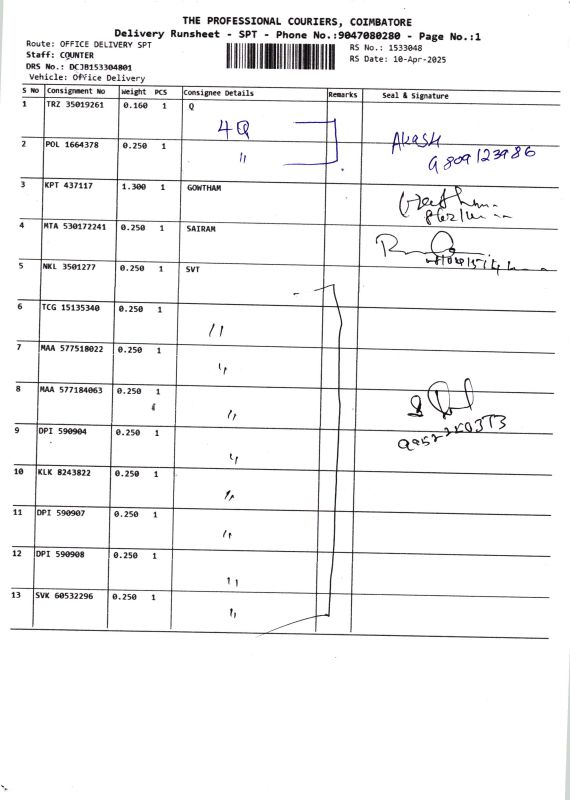 THE PROFESSIONAL COURIERS, COIMBATORE
Delivery Runsheet - SPT - Phone No.:9047080280 - Page No.:1
Route: OFFICE DELIVERY SPT
Staff: COUNTER
DRS No.: DCJB153304801
Vehicle: Office Delivery
RS No.: 1533048
RS Date: 10-Apr-2025
S No Consignment No Weight PCS Consignee Details Remarks Seal & Signature
1 TRZ 35019261 0.160 1 Q
4Q
2 POL 1664378 0.250 1 "
Akash
9809123986
3 KPT 437117 1.300 1 GOWTHAM
4 MTA 530172241 0.250 1 SAIRAM
5 NKL 3501277 0.250 1 SVT
6 TCG 15135340 0.250 1 "
7 MAA 577518022 0.250 1 "
8 MAA 577184063 0.250 1 "
9 DPI 590904 0.250 1 "
10 KLK 8243822 0.250 1 "
11 DPI 590907 0.250 1 "
12 DPI 590908 0.250 1 "
13 SVK 60532296 0.250 1 "